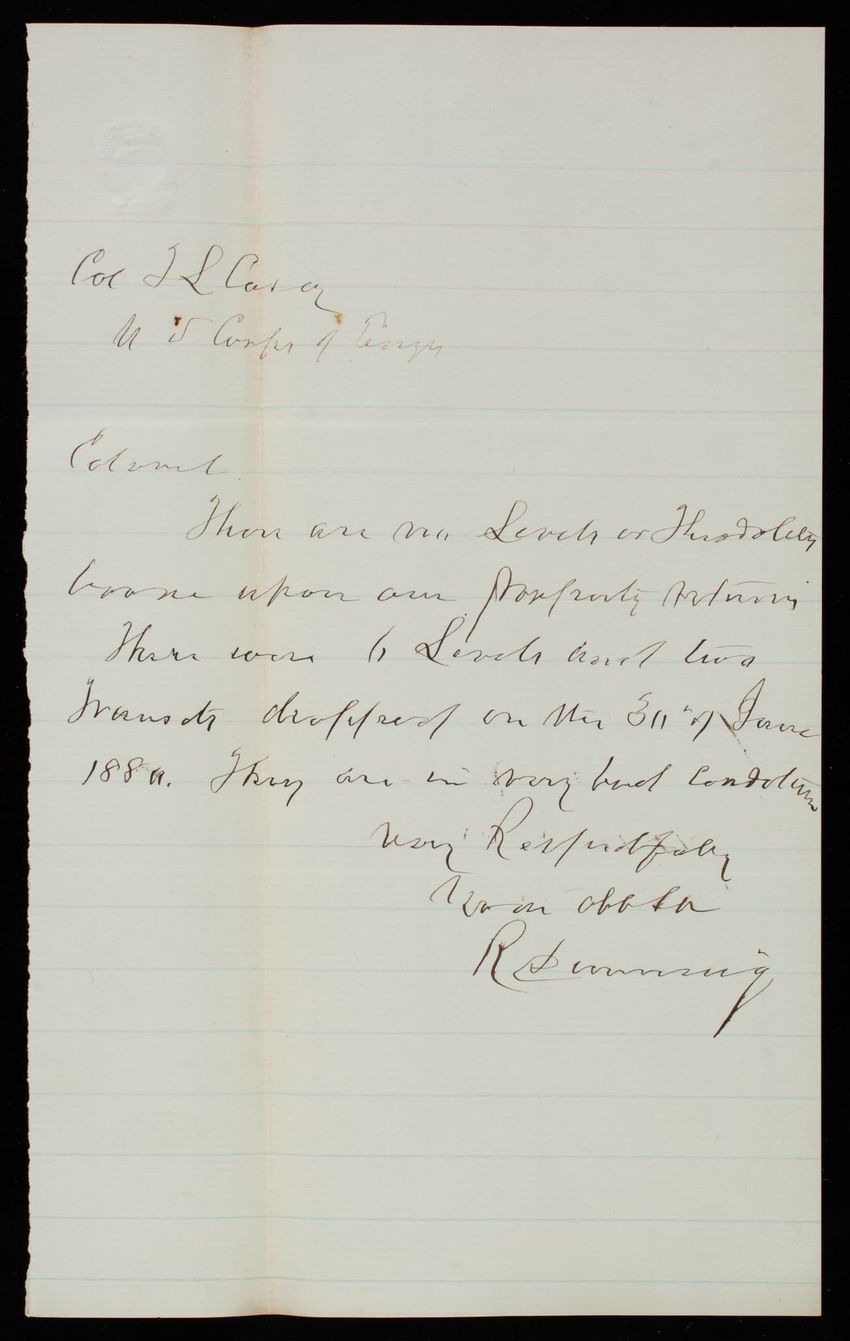 Col T L Casey
U S Corps of Engrs
Colonel
There are no Levels or Theodolites
borne upon our property returns
There were 6 Levels and two
Transits dropped on the 30" of June
1880. They are in very bad condition
Very Respectfully
Your obt
R